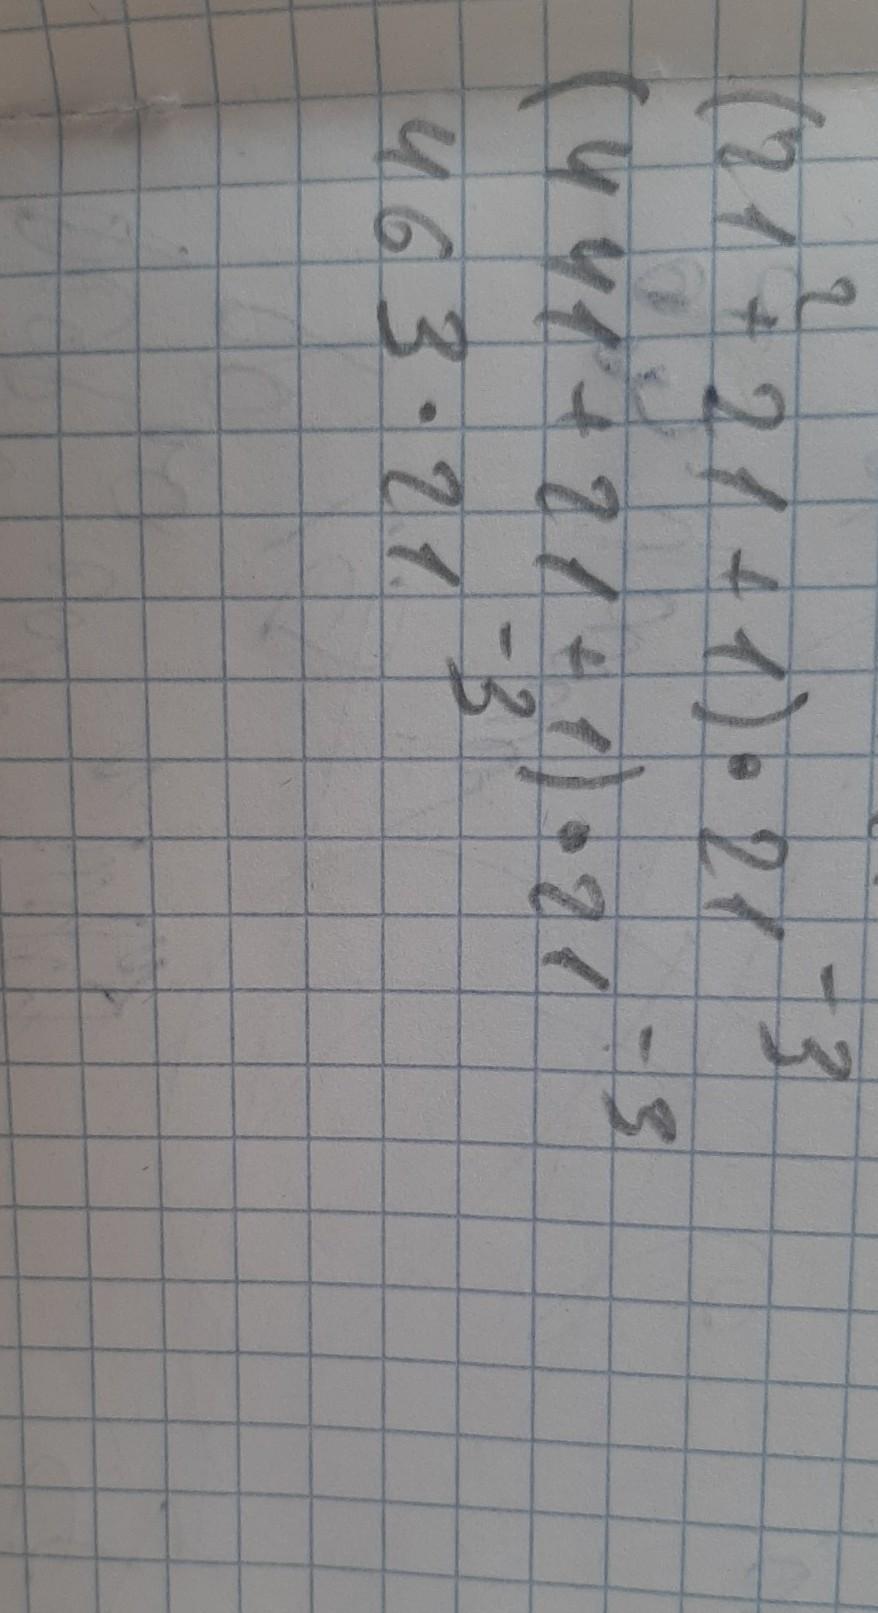 (21² + 21 + 1) • 21⁻³
(441 + 21 + 1) • 21⁻³
463 • 21⁻³